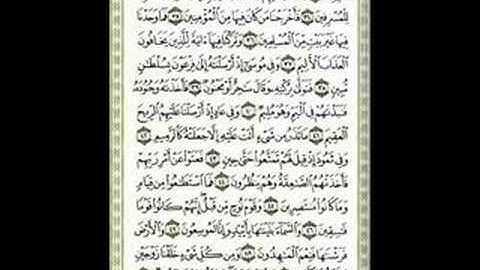 لِلْمُسْرِفِينَ ٣٤ فَأَخْرَجْنَا مَن كَانَ فِيهَا مِنَ ٱلْمُؤْمِنِينَ ٣٥ فَمَا وَجَدْنَا
فِيهَا غَيْرَ بَيْتٍ مِّنَ ٱلْمُسْلِمِينَ ٣٦ وَتَرَكْنَا فِيهَآ ءَايَةً لِّلَّذِينَ يَخَافُونَ
ٱلْعَذَابَ ٱلْأَلِيمَ ٣٧ وَفِى مُوسَىٰٓ إِذْ أَرْسَلْنَٰهُ إِلَىٰ فِرْعَوْنَ بِسُلْطَٰنٍ
مُّبِينٍ ٣٨ فَتَوَلَّىٰ بِرُكْنِهِۦ وَقَالَ سَٰحِرٌ أَوْ مَجْنُونٌ ٣٩ فَأَخَذْنَٰهُ وَجُنُودَهُۥ
فَنَبَذْنَٰهُمْ فِى ٱلْيَمِّ وَهُوَ مُلِيمٌ ٤٠ وَفِى عَادٍ إِذْ أَرْسَلْنَا عَلَيْهِمُ ٱلرِّيحَ
ٱلْعَقِيمَ ٤١ مَا تَذَرُ مِن شَىْءٍ أَتَتْ عَلَيْهِ إِلَّا جَعَلَتْهُ كَٱلرَّمِيمِ ٤٢
وَفِى ثَمُودَ إِذْ قِيلَ لَهُمْ تَمَتَّعُوا۟ حَتَّىٰ حِينٍ ٤٣ فَعَتَوْا۟ عَنْ أَمْرِ رَبِّهِمْ
فَأَخَذَتْهُمُ ٱلصَّٰعِقَةُ وَهُمْ يَنظُرُونَ ٤٤ فَمَا ٱسْتَطَٰعُوا۟ مِن قِيَامٍ
وَمَا كَانُوا۟ مُنتَصِرِينَ ٤٥ وَقَوْمَ نُوحٍ مِّن قَبْلُ إِنَّهُمْ كَانُوا۟ قَوْمًا
فَٰسِقِينَ ٤٦ وَٱلسَّمَآءَ بَنَيْنَٰهَا بِأَيْي۟دٍ وَإِنَّا لَمُوسِعُونَ ٤٧ وَٱلْأَرْضَ
فَرَشْنَٰهَا فَنِعْمَ ٱلْمَٰهِدُونَ ٤٨ وَمِن كُلِّ شَىْءٍ خَلَقْنَا زَوْجَيْنِ